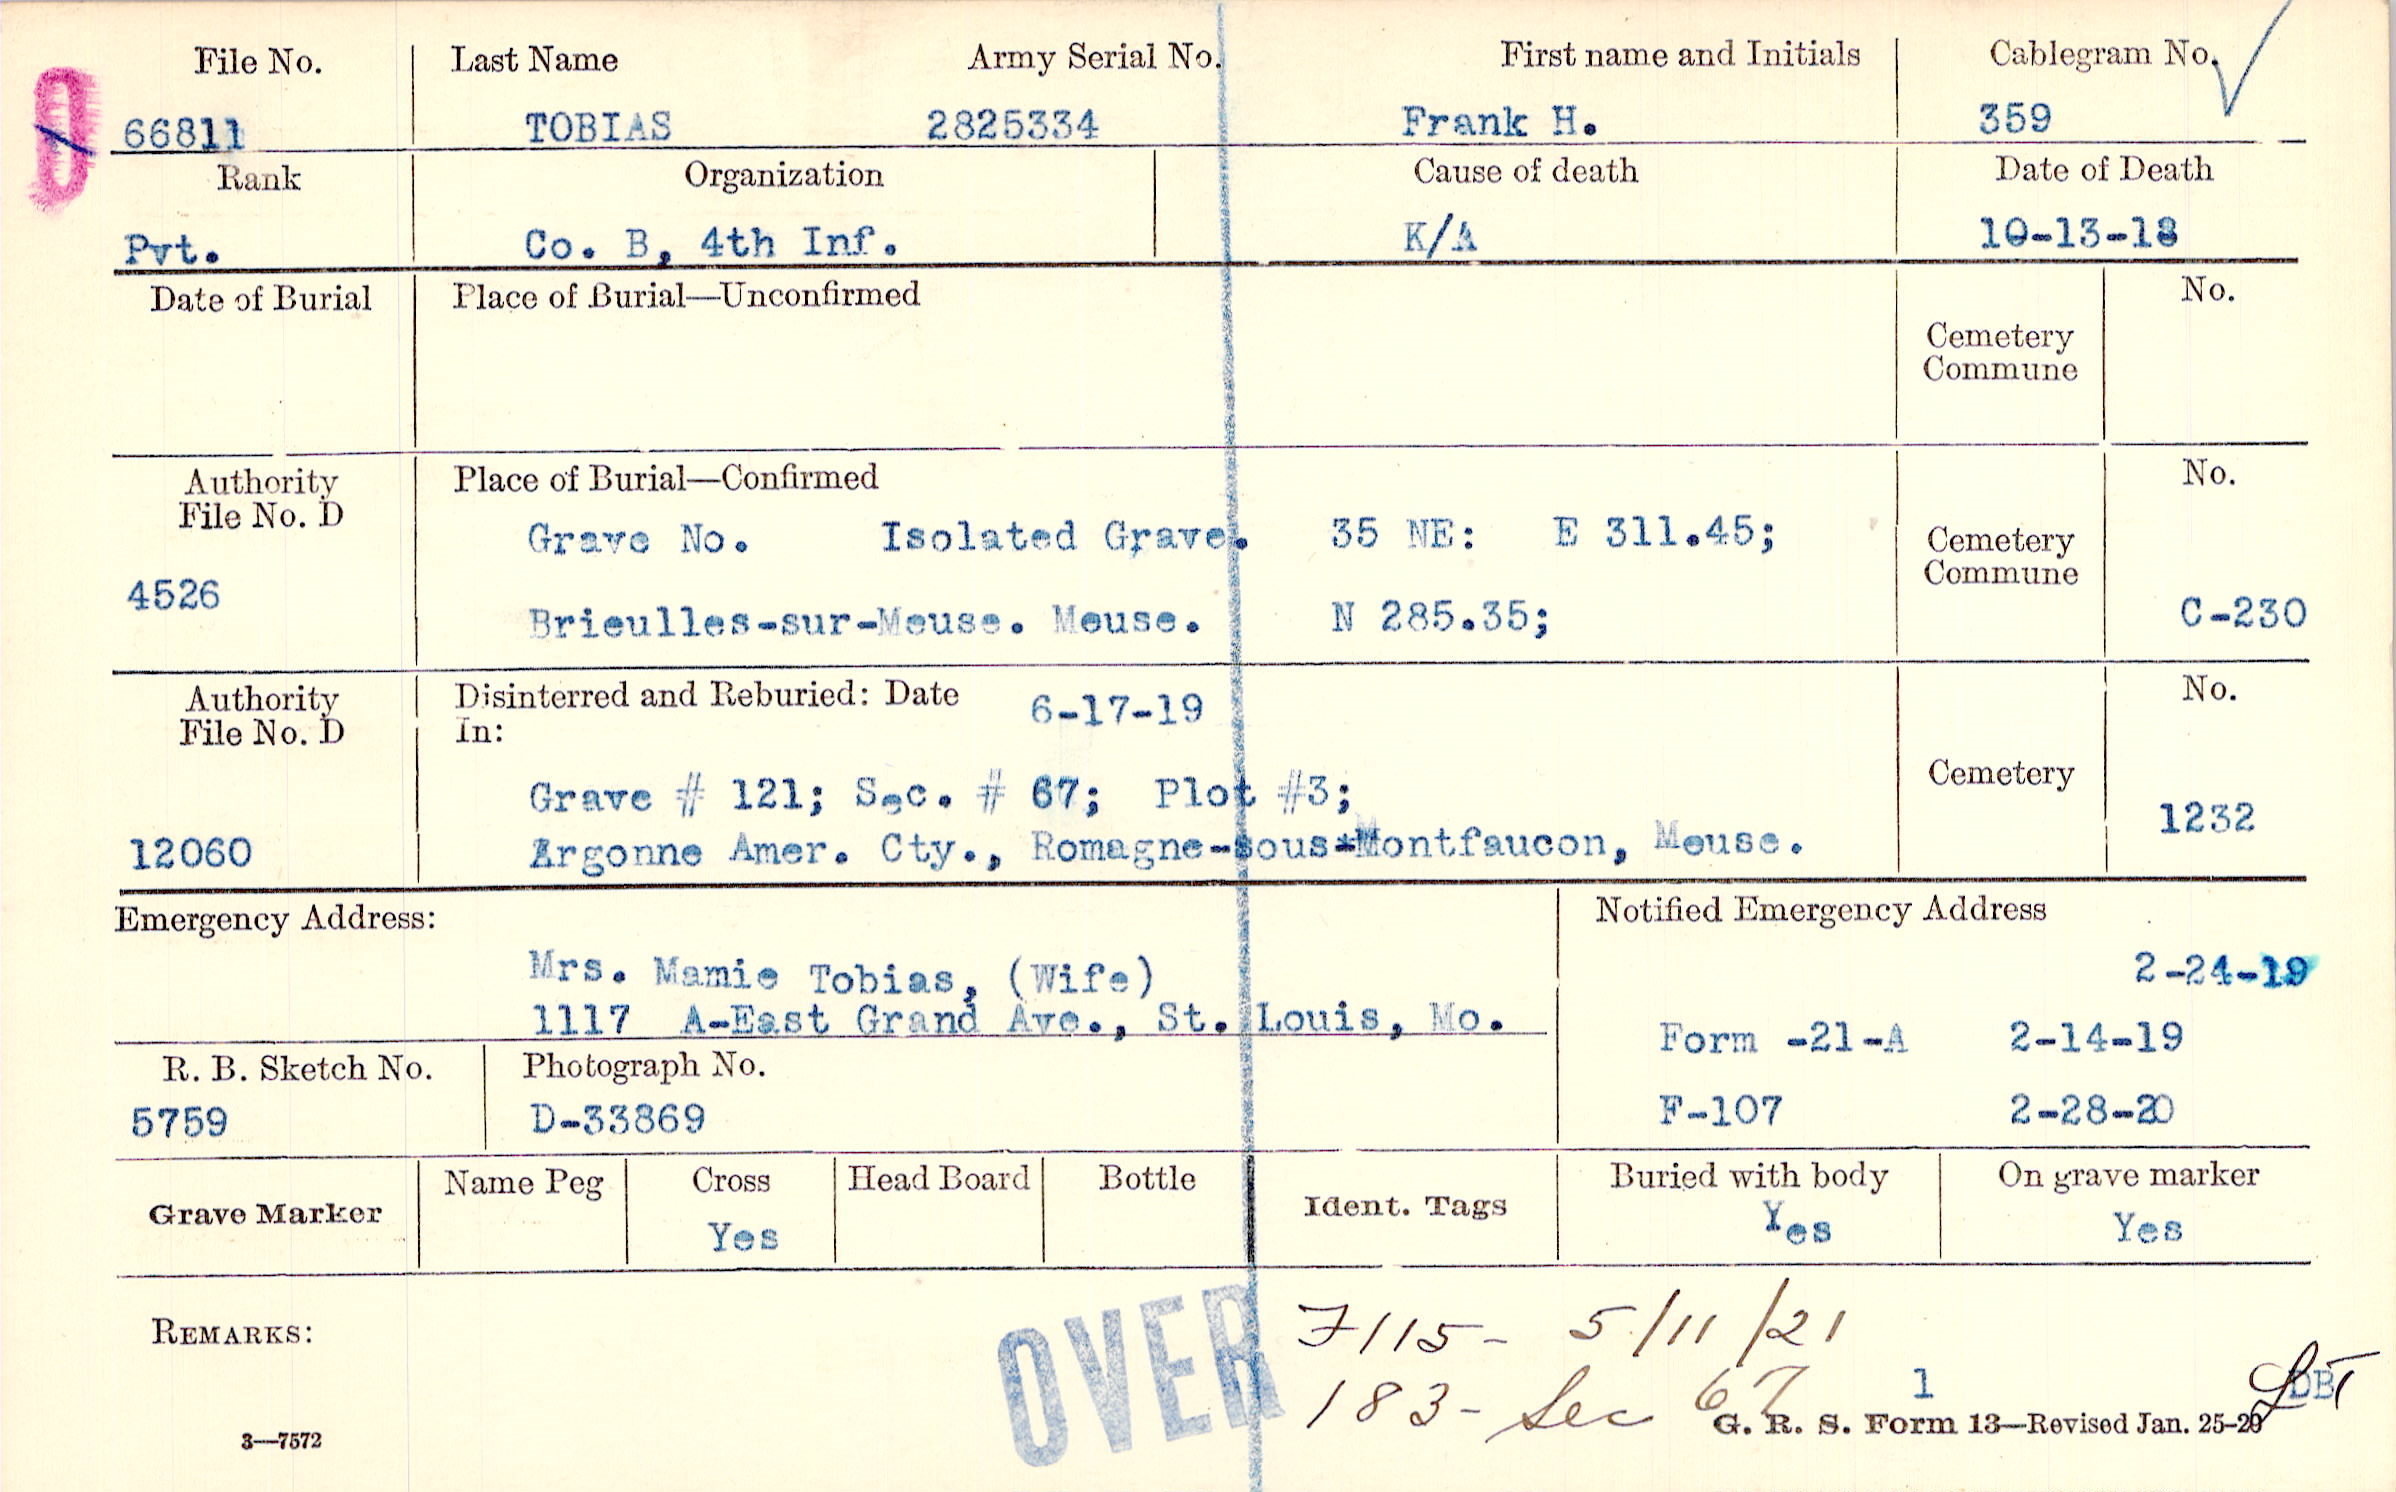 File No. Last Name Army Serial No. First name and Initials Cablegram No.
66811 TOBIAS 2825334 Frank H. 359
Rank Organization Cause of death Date of Death
Pvt. Co. B, 4th Inf. K/A 10-13-18
Date of Burial Place of Burial—Unconfirmed No.
Cemetery
Commune
Authority Place of Burial—Confirmed No.
File No. D
Grave No. Isolated Grave. 35 NE: E 311.45; Cemetery
Commune
4526
Brieulles-sur-Meuse. Meuse. N 285.35; C-230
Authority Disinterred and Reburied: Date 6-17-19 No.
File No. D In:
Cemetery
Grave # 121; Sec. # 67; Plot #3; 1232
12060 Argonne Amer. Cty., Romagne-sous*Montfaucon, Meuse.
Emergency Address: Notified Emergency Address
Mrs. Mamie Tobias, (Wife) 2-24-19
1117 A-East Grand Ave., St. Louis, Mo.
Form -21-A 2-14-19
R. B. Sketch No. Photograph No.
5759 D-33869 F-107 2-28-20
Grave Marker Name Peg Cross Head Board Bottle Ident. Tags Buried with body On grave marker
Yes Yes Yes
REMARKS: OVER 7115- 5/11/21
183- Sec 67 1
G. R. S. Form 13—Revised Jan. 25-20
3—7572